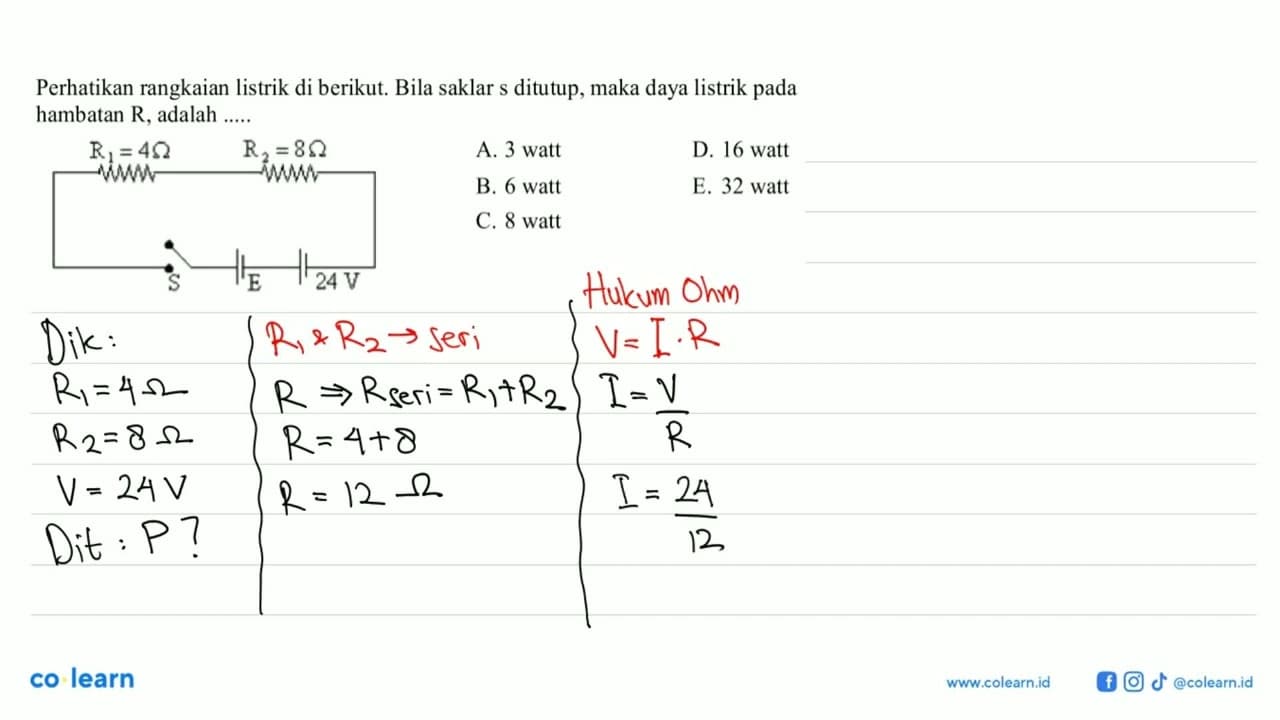 Perhatikan rangkaian listrik di berikut. Bila saklar s ditutup, maka daya listrik pada
hambatan R, adalah .....
R1 = 4Ω
R2 = 8Ω
S
E
24 V
A. 3 watt
B. 6 watt
C. 8 watt
D. 16 watt
E. 32 watt
Dik:
R1 = 4 Ω
R2 = 8 Ω
V = 24 V
Dit : P?
R1 & R2 → seri
R ⇒ Rseri = R1 + R2
R = 4 + 8
R = 12 Ω
Hukum Ohm
V = I · R
I = V
R
I = 24
12
co·learn
www.colearn.id
@colearn.id